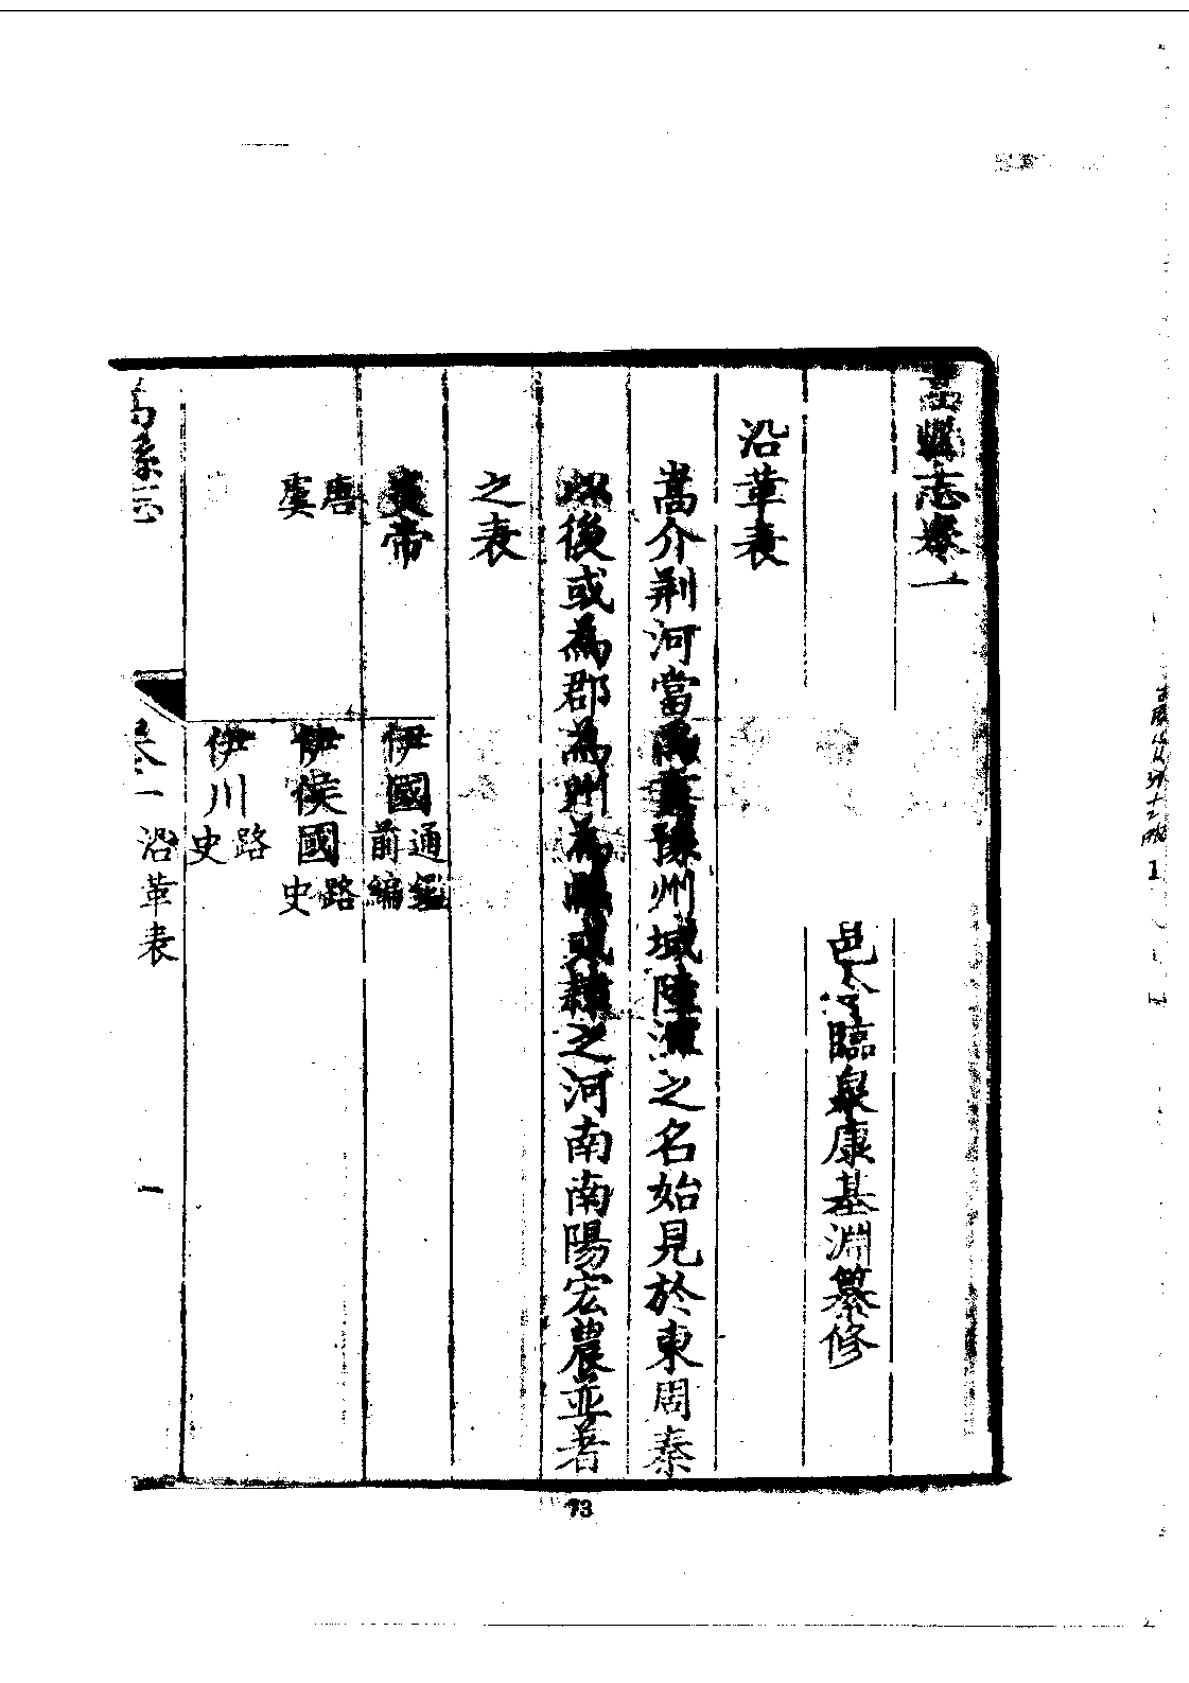 嵩縣志卷一
邑令臨泉康基淵纂修
沿革表
嵩介荆河當為冀豫州域陸渾之名始見於東周秦
後或為郡為州為縣或隸之河南南陽宏農並著
之表
帝 伊國 通鑑前編
唐虞 伊侯國 路史
伊川 路史
嵩縣志 卷一 沿革表 一
73